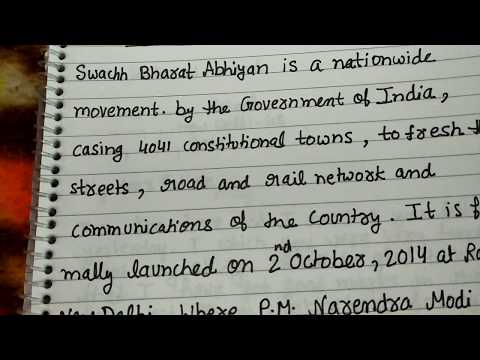 Swachh Bharat Abhiyan is a nationwide
movement. by the Government of India,
casing 4041 constitutional towns, to fresh
streets, road and rail network and
communications of the Country. It is
mally launched on 2nd October, 2014 at
Delhi, where P.M. Narendra Modi